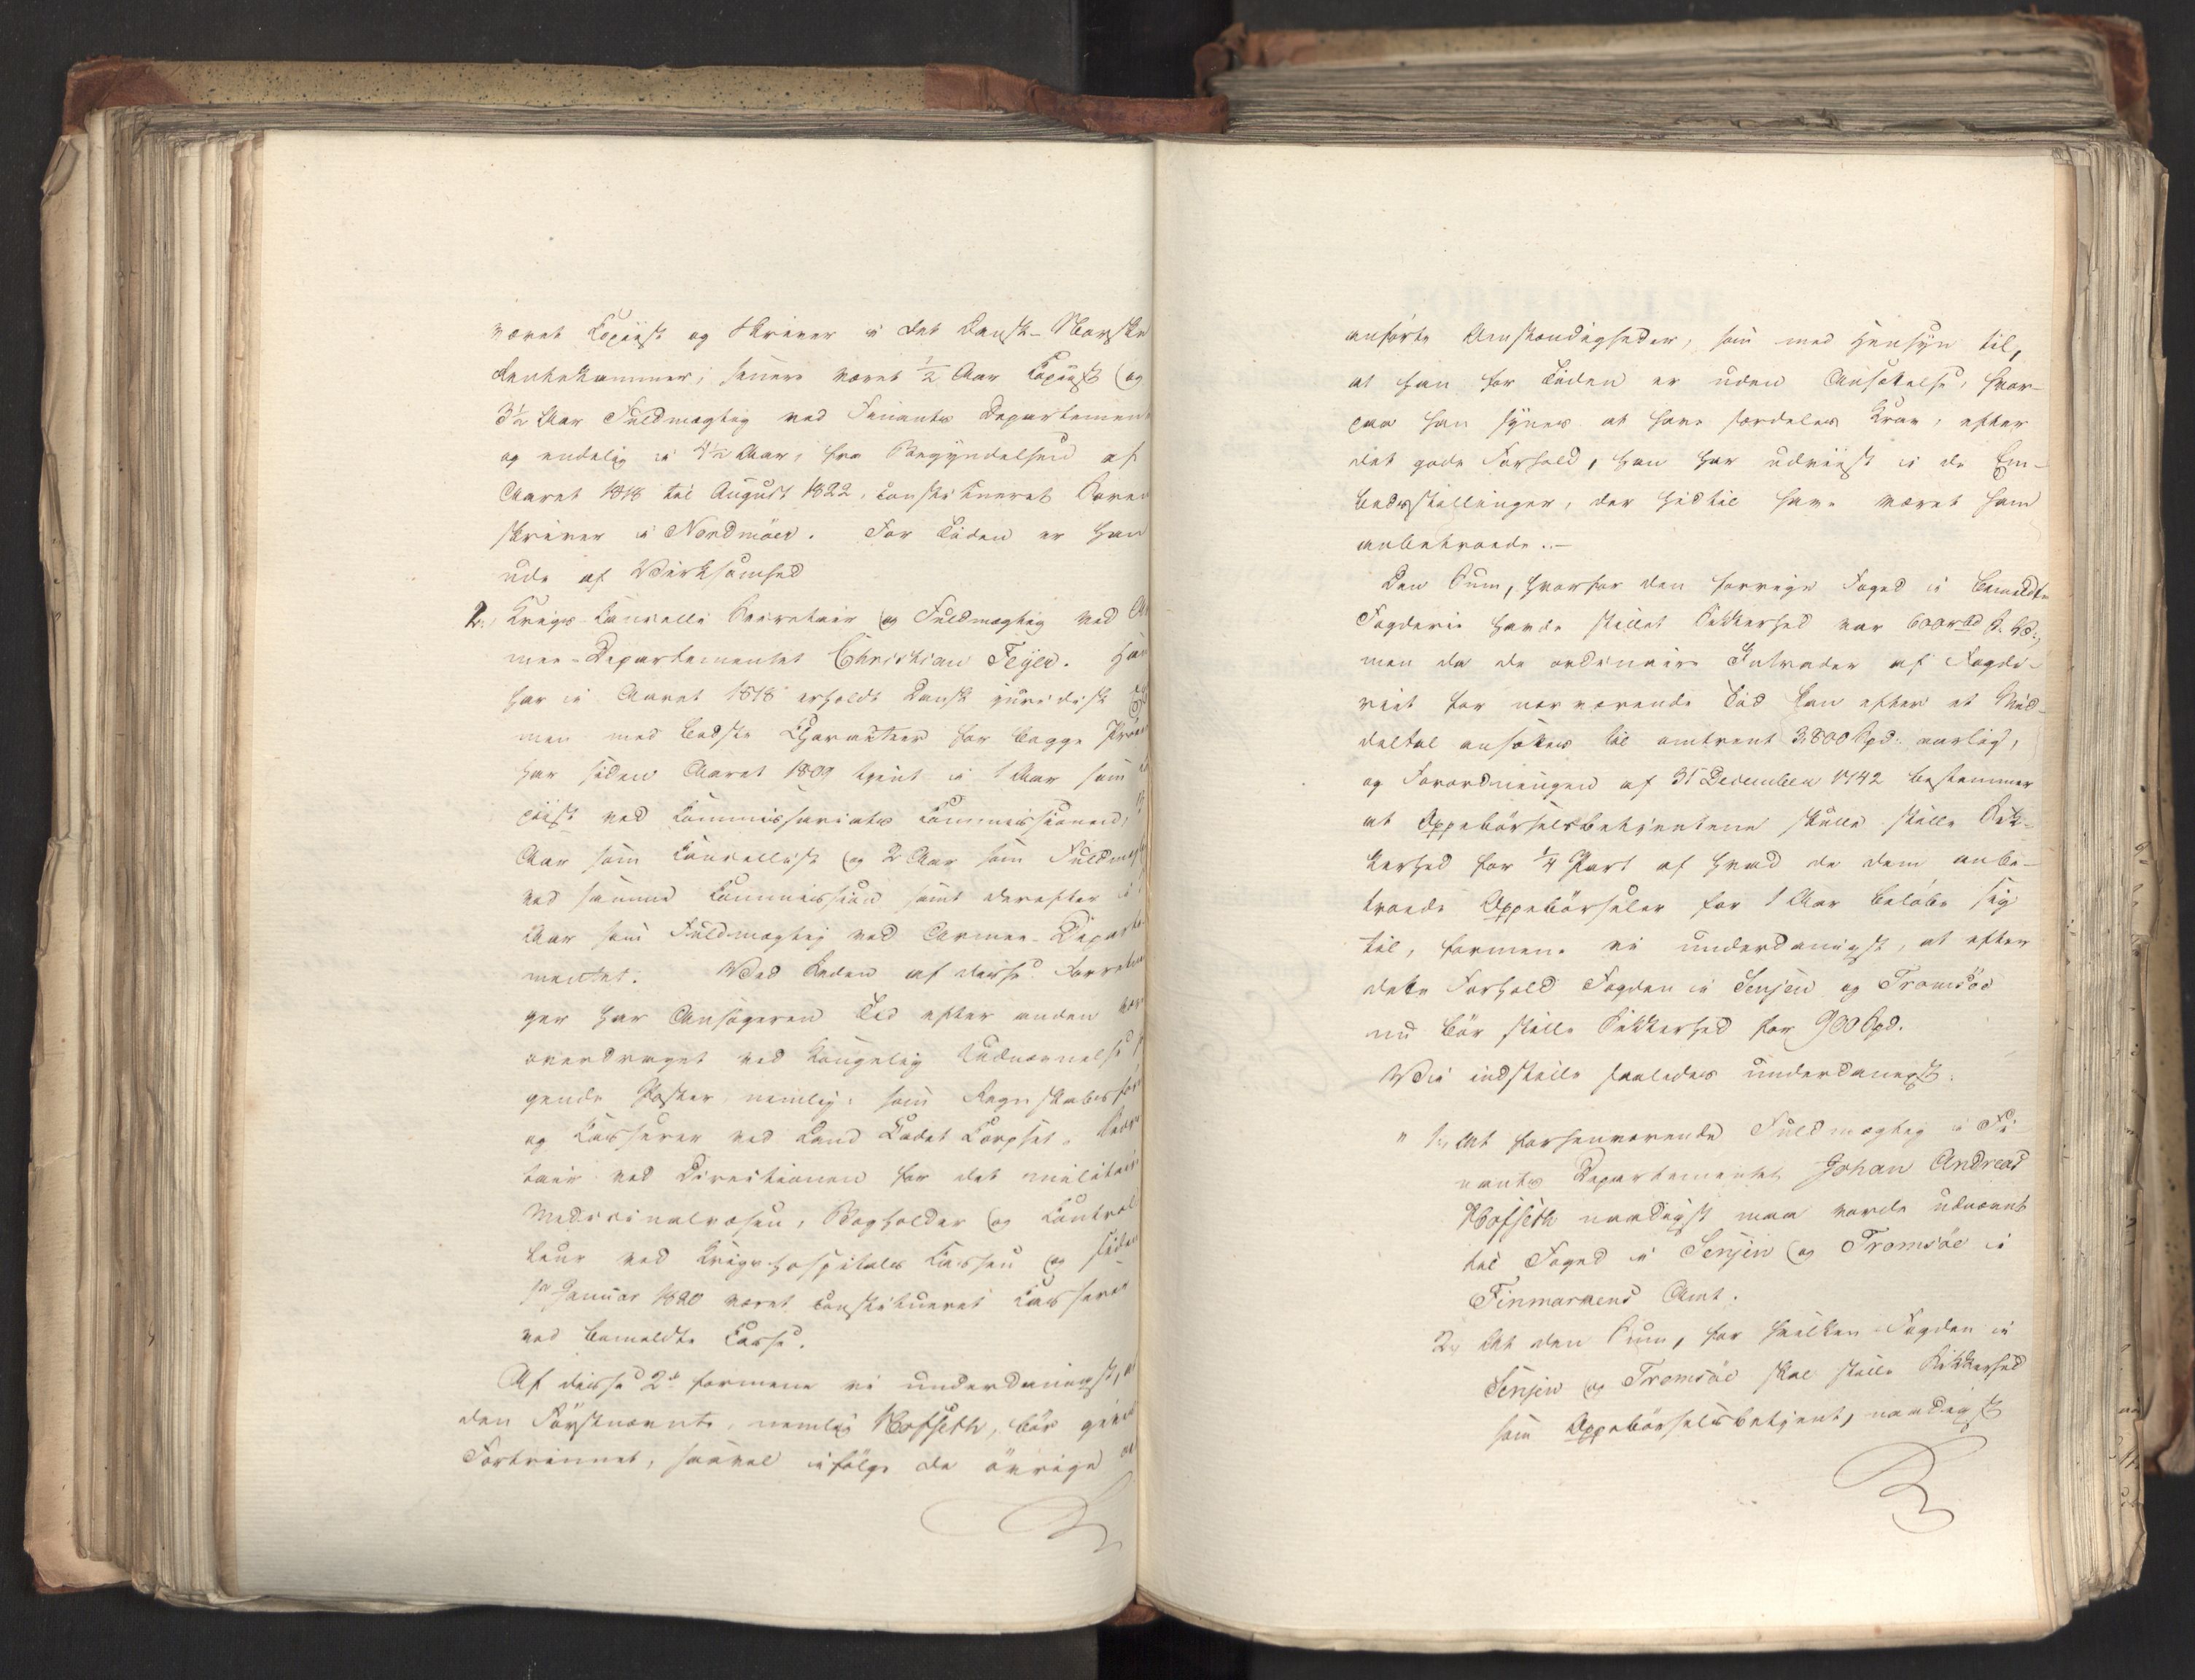 været Copiist og Skriver i det Dansk-Norske
Rentekammer, senere været ½ Aar Copiist og
3½ Aar Fuldmægtig ved Finants Departement
og endelig i 4½ Aar, fra Begyndelsen af
Aaret 1818 til August 1822, constitueret Soren
skriver i Nordmöer. For Tiden er han
ude af Virksomhed
2., Krigs-Cancellie Secretair og Fuldmægtig ved Ar
mee-Departementet Christian Feyer. Han
har i Aaret 1818 erholdt Dansk juridisk Exa
men med bedste Charakteer for begge Pröver
har siden Aaret 1809 tjent i 1 Aar som Co
piist ved Commissariats Commissionen,
Aar som Cancellist og 2 Aar som Fuldmægtig
ved samme Commission samt derefter i
Aar som Fuldmægtig ved Armee-Departe
mentet. Ved Siden af disse Forretnin
ger har Ansögeren Tid efter anden været
overdraget ved Kongelig Udnævnelse föl
gende Poster, nemlig: som Regnskabsförer
og Casserer ved Land Cadet Corpset, Secre
tair ved Directionen for det militaire
Medicinalvæsen, Bogholder og Control
leur ved Krigshospitals Cassen og siden
1ste Januar 1820 været constitueret Casserer
ved bemeldte Casse.
Af disse 2de formene vi underdanigst, at
den Förstnævnte, nemlig Hofseth, bör gives
Fortrinnet, saavel ifölge de övrige an
anförte Omstændigheder, som med Hensyn til,
at han for Tiden er uden Ansættelse, hvor-
paa han synes at have særdeles Krav, efter
det gode Forhold, han har udviist i de Em-
bedsstillinger, der hidtil have været ham
anbetroede.-
Den Sum, hvorfor den forrige Foged i bemeldte
Fogderie havde stillet Sikkerhed var 600 rbd S. V.,
men da de ordinaire Intrader af Fogde-
riet for nærværende Tid kan efter et Mid-
deltal ansættes til omtrent 3,800 Spd. aarlig,
og Forordningen af 31 December 1742 bestemmer
at Oppebörselsbetjentene skulle stille Sik-
kerhed for ¼ Part af hvad de dem anbe-
troede Oppebörseler for 1 Aar belöbe sig
til, formene vi underdanigst, at efter
dette Forhold Fogden i Senjen og Tromsöe
nu bör stille Sikkerhed for 900 Spd.
Vi indstille saaledes underdanigst:
" 1., At forhenværende Fuldmægtig i Fi-
nants Departementet Johan Andreas
Hofseth naadigst maa vorde udnævnt
til Foged i Senjen og Tromsöe i
Finmarkens Amt.
2., At den Sum, for hvilken Fogden i
Senjen og Tromsöe skal stille Sikkerhed
som Oppebörselsbetjent, naadigst